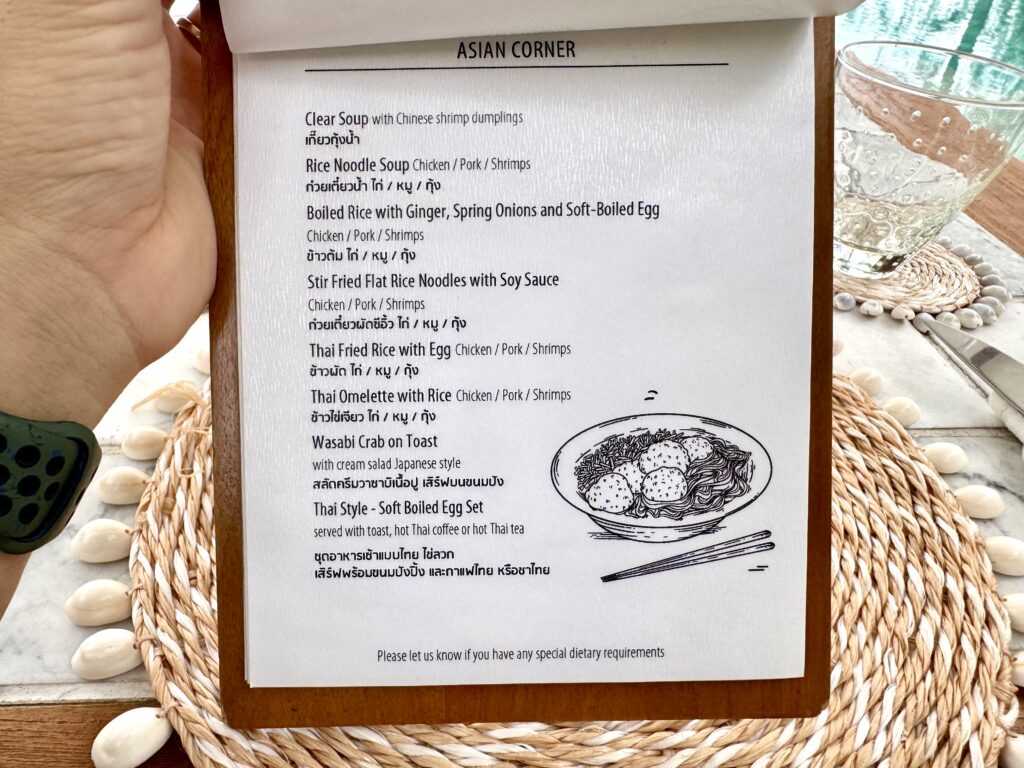 ASIAN CORNER
Clear Soup with Chinese shrimp dumplings
เกี๊ยวกุ้งน้ำ
Rice Noodle Soup Chicken / Pork / Shrimps
ก๋วยเตี๋ยวน้ำ ไก่ / หมู / กุ้ง
Boiled Rice with Ginger, Spring Onions and Soft-Boiled Egg
Chicken / Pork / Shrimps
ข้าวต้ม ไก่ / หมู / กุ้ง
Stir Fried Flat Rice Noodles with Soy Sauce
Chicken / Pork / Shrimps
ก๋วยเตี๋ยวผัดซีอิ้ว ไก่ / หมู / กุ้ง
Thai Fried Rice with Egg Chicken / Pork / Shrimps
ข้าวผัด ไก่ / หมู / กุ้ง
Thai Omelette with Rice Chicken / Pork / Shrimps
ข้าวไข่เจียว ไก่ / หมู / กุ้ง
Wasabi Crab on Toast
with cream salad Japanese style
สลัดครีมวาซาบิเนื้อปู เสิร์ฟบนขนมปัง
Thai Style - Soft Boiled Egg Set
served with toast, hot Thai coffee or hot Thai tea
ชุดอาหารเช้าแบบไทย ไข่ลวก
เสิร์ฟพร้อมขนมปังปิ้ง และกาแฟไทย หรือชาไทย
Please let us know if you have any special dietary requirements